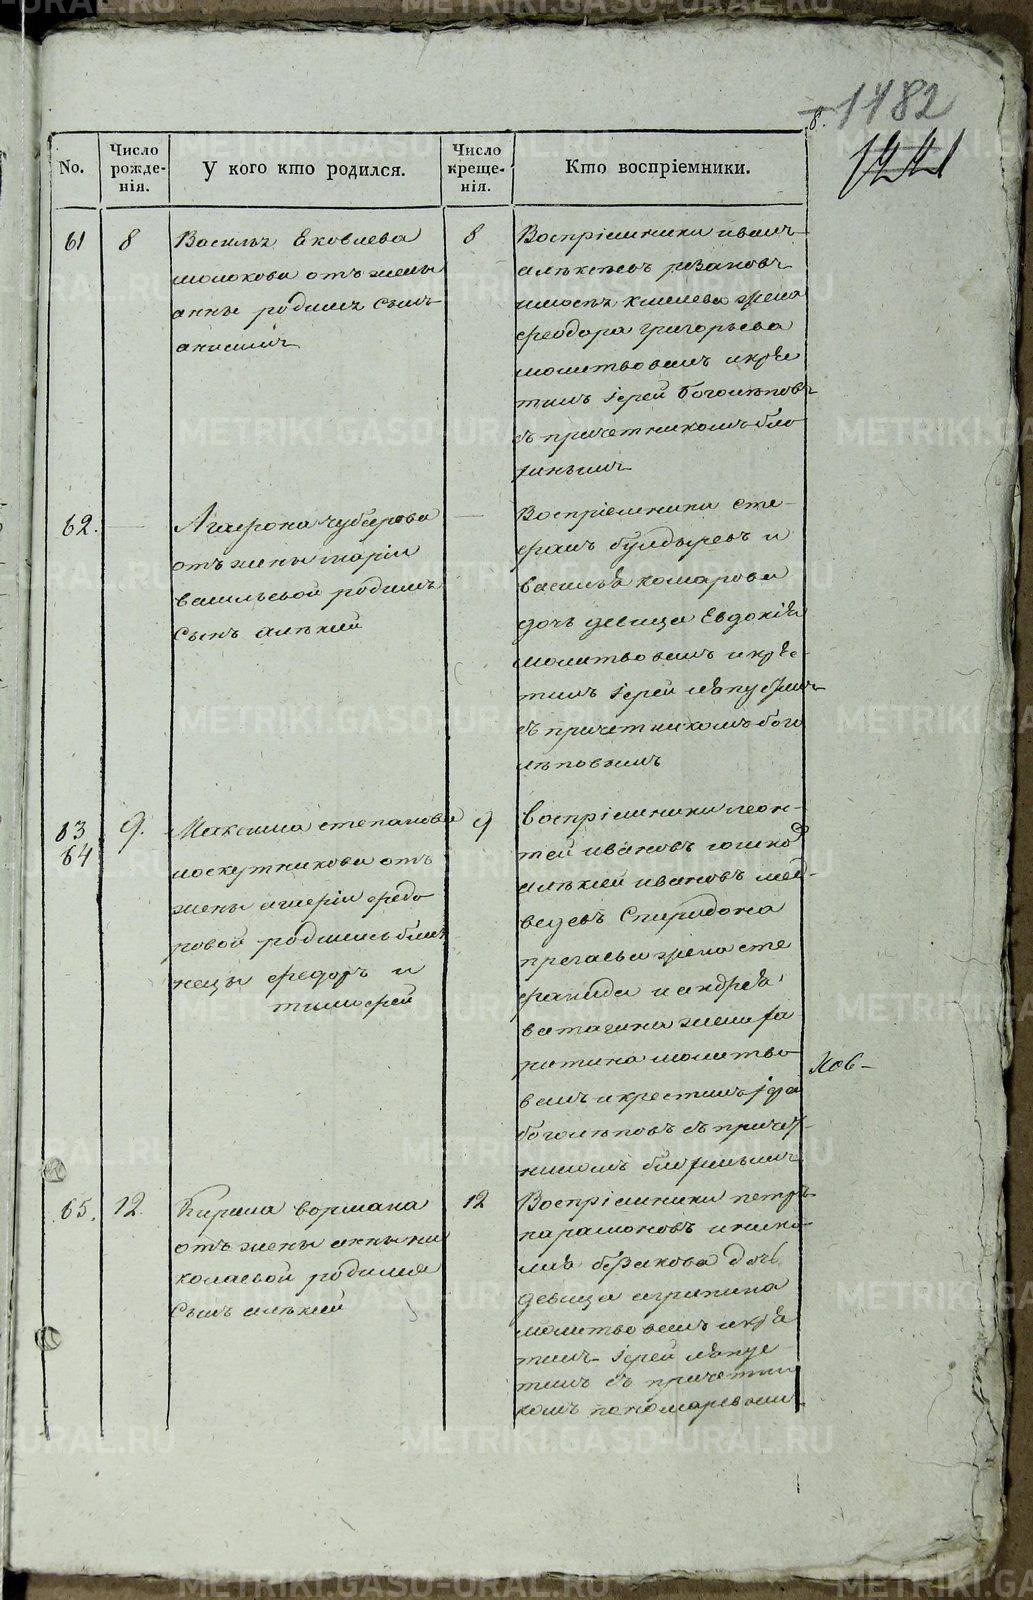 8.
1482
1221
No.
Число рожденія.
У кого кто родился.
Число крещенія.
Кто воспріемники.
61
8
Василья Яковлева
молокова отъ жены
анны родился сынъ
анисимъ
8
Воспріемники иванъ
алексѣевъ резановъ
жена
феодора григорьева
молитвовалъ и кре
тилъ іерей Боголѣповъ
съ причетникомъ бли
62.
Агафона чубарова
отъ жены маріи
васильевой родился
сынъ алѣксѣй
Воспріемники сте-
фанъ булдыревъ и
василья комарова
дочь девица Евдокія
молитвовалъ и кре-
тилъ іерей
съ причетникомъ бого
лѣповымъ
63
64
9.
Максима степанова
лоскутникова отъ
жены маріи федо
ровой родились близ
нецы федоръ и
тимофей
9
Воспріемники леон-
тей ивановъ
алѣксѣй ивановъ мед-
ведевъ Спиридона
жена сте
фанида и андрея
ватагина жена
молитво
валъ и крестилъ
боголѣповъ съ причет
никомъ
65.
12.
Кирила
отъ жены анны ни
колаевой родился
сынъ алѣксѣй
12
Воспріемники петръ
парамоновъ и
дочь
девица агрипина
молитвовалъ и кре
тилъ іерей
съ причетни
комъ пономаревым
METRIKI.GASO-URAL.RU